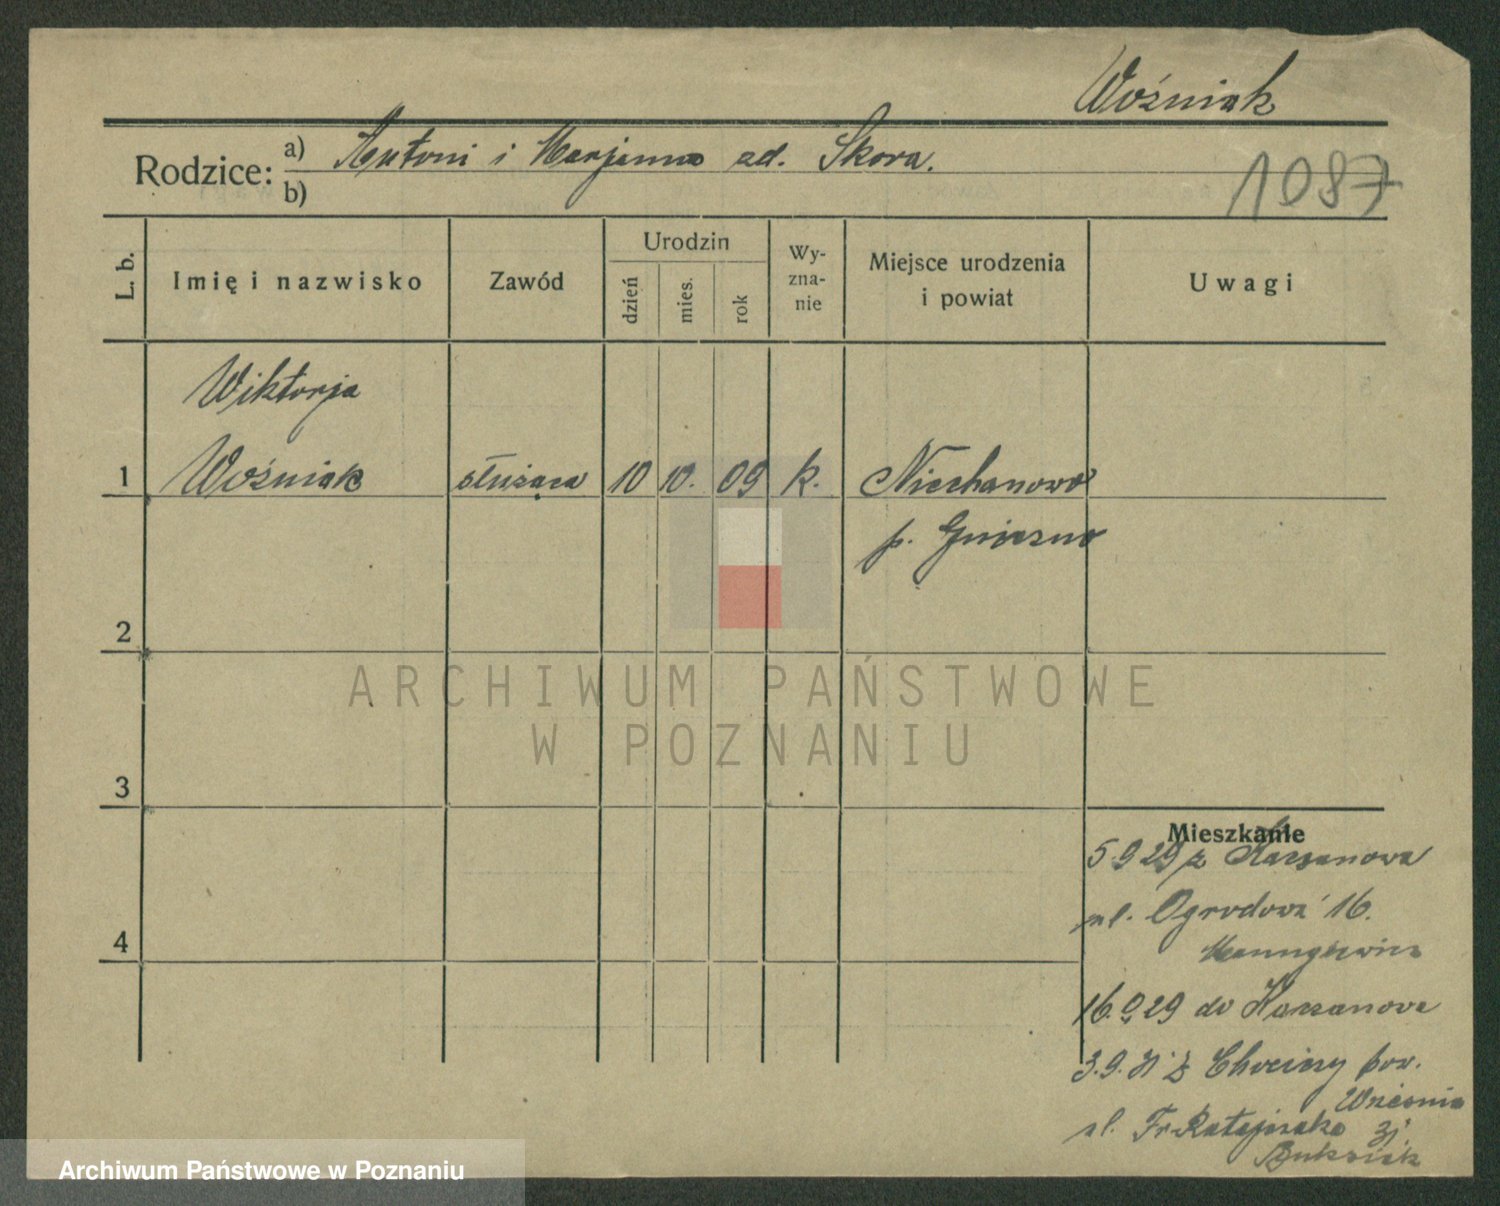 Woźniak
Rodzice: a) Antoni i Marjanna zd. Skora.
b)
1087
L. b. Imię i nazwisko Zawód Urodzin dzień mies. rok Wy-zna-nie Miejsce urodzenia i powiat Uwagi
Wiktorja
1 Woźniak służąca 10 10. 09 k. Niechanowo
p. Gniezno
2
ARCHIWUM PAŃSTWOWE
W POZNANIU
3
Mieszkanie
5.9 29 z Karsanowa
ul. Ogrodowa 16.
4
16.9 29 do Karsanowa
3.9. 31 z Chociczy pow.
Września
ul. Fr Ratajczaka
Archiwum Państwowe w Poznaniu